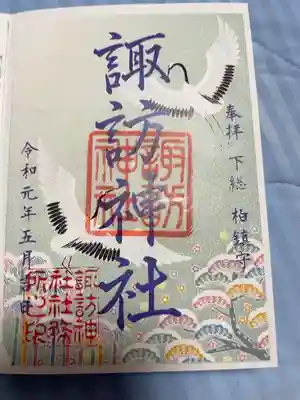 奉拝 下総 柏鎮守
諏訪神社
諏訪神社
令和元年五月吉日
諏訪神
社社務
所之印